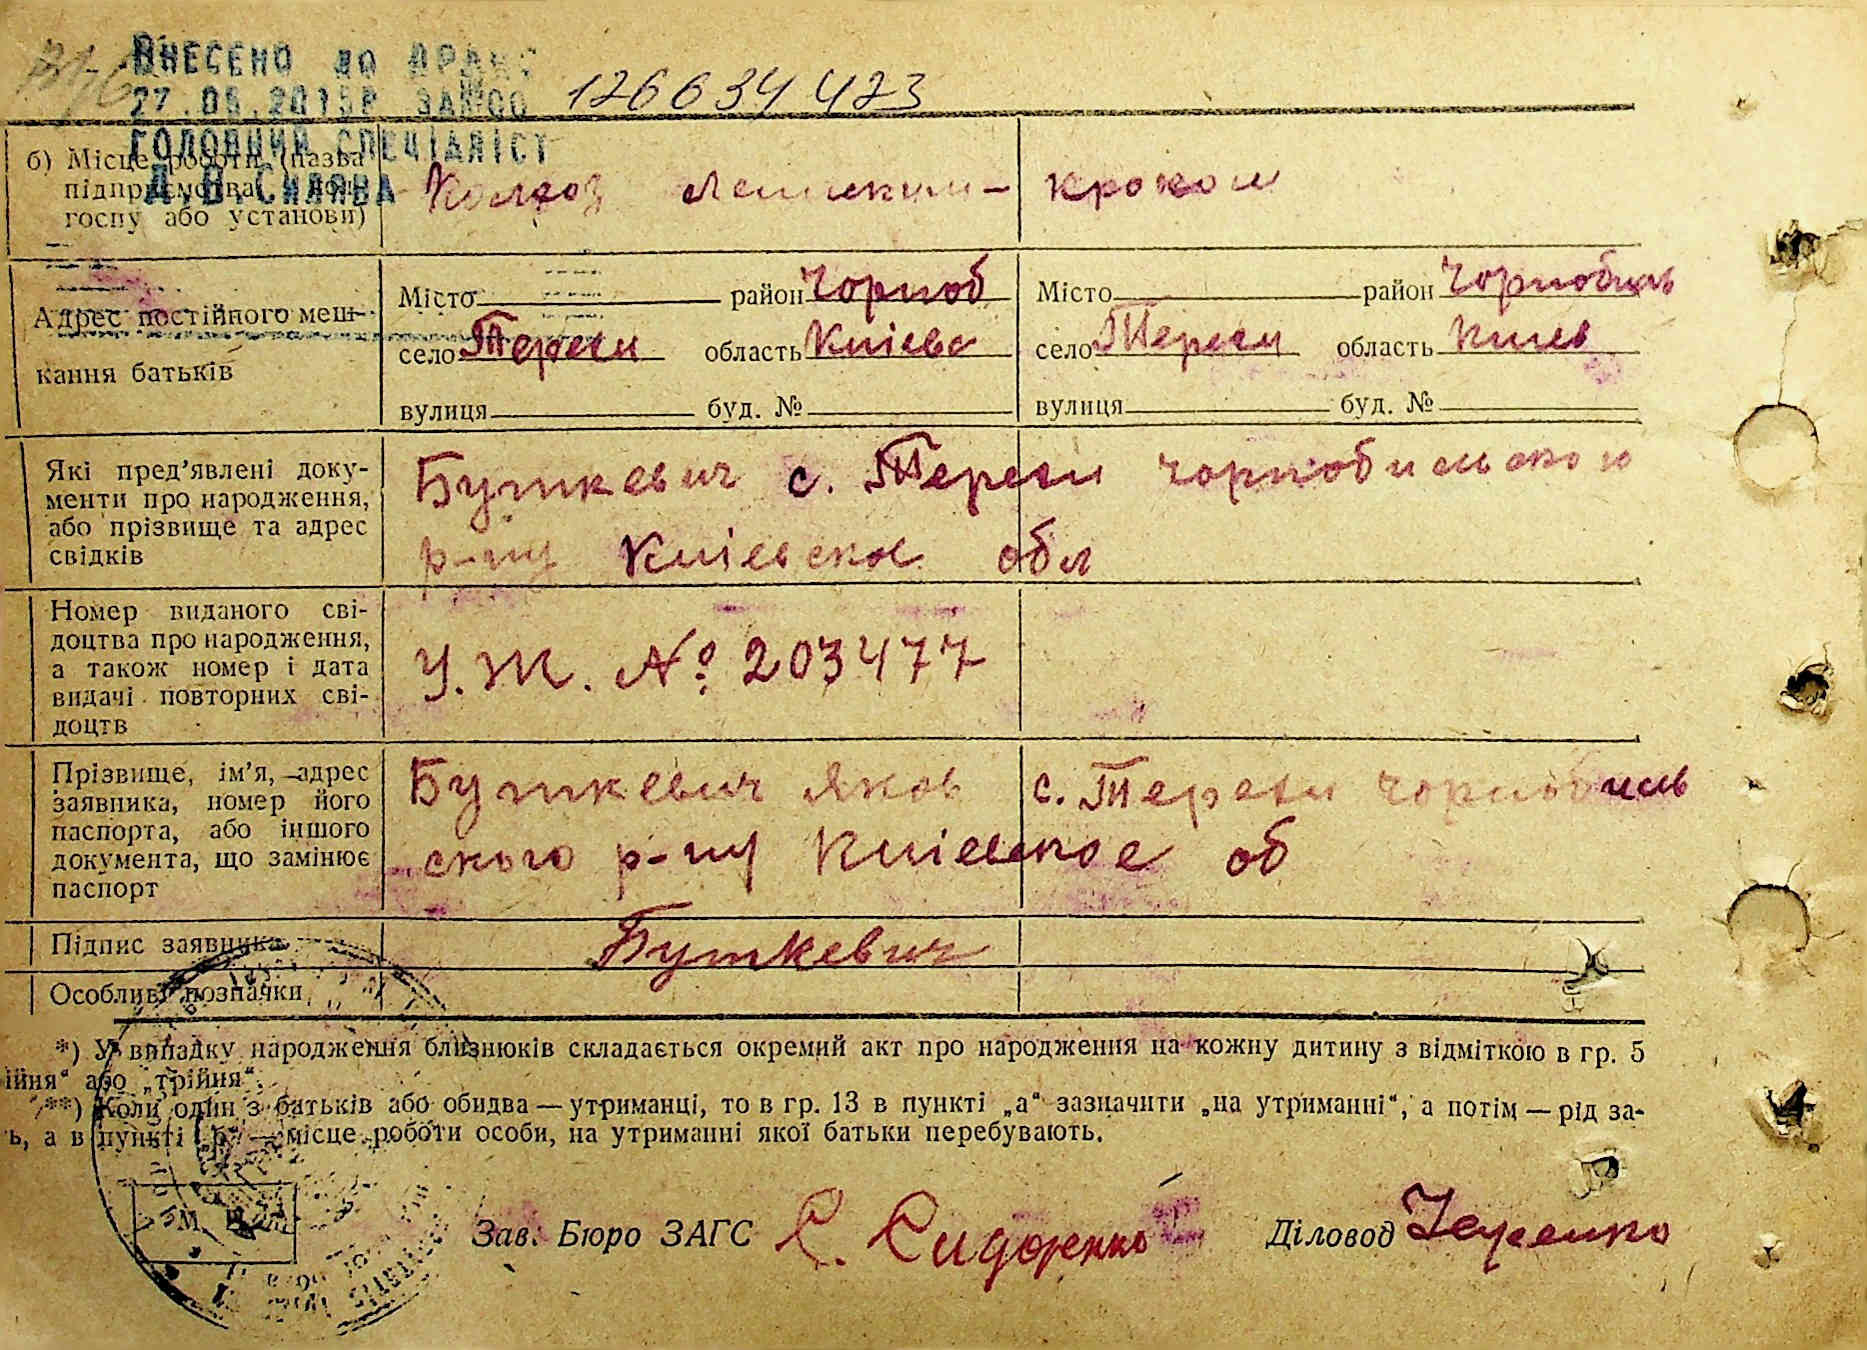 ВНЕСЕНО ДО ДРАЦС
27.05.2015Р ЗАК ОО 126634423
ГОЛОВНИЙ СПЕЦІАЛІСТ
Д.В.СИЛЯВА
б) Місце роботи (назва
підприємства,
госпу або установи)
Колгоз Ленинским- кроком
Місто район Чорноб Місто район Чорнобиль
Адрес постійного меш-
село Тереси область Киієвс село Тереси область Киев
кання батьків
вулиця буд. № вулиця буд. №
Які пред'явлені доку-
менти про народження,
або прізвище та адрес
свідків
Буткевич с. Тереси Чорнобильского
р-ну Киіевское обл
Номер виданого сві-
доцтва про народження,
а також номер і дата
видачі повторних сві-
доцтв
У.Ж. № 203477
Прізвище, ім'я, адрес
заявника, номер його
паспорта, або іншого
документа, що замінює
паспорт
Буткевич Яков с. Тереси Чорнобиль
ского р-ну Киіевское об
Підпис заявника Буткевич
Особливі позначки
*) У випадку народження близнюків складається окремий акт про народження на кожну дитину з відміткою в гр. 5
ійня“ або „трійня“.
**) Коли один з батьків або обидва — утриманці, то в гр. 13 в пункті „а“ зазначити „на утриманні“, а потім — рід за-
ь, а в пункті — місце роботи особи, на утриманні якої батьки перебувають.
М.
Зав. Бюро ЗАГС С. Сидоренко Діловод